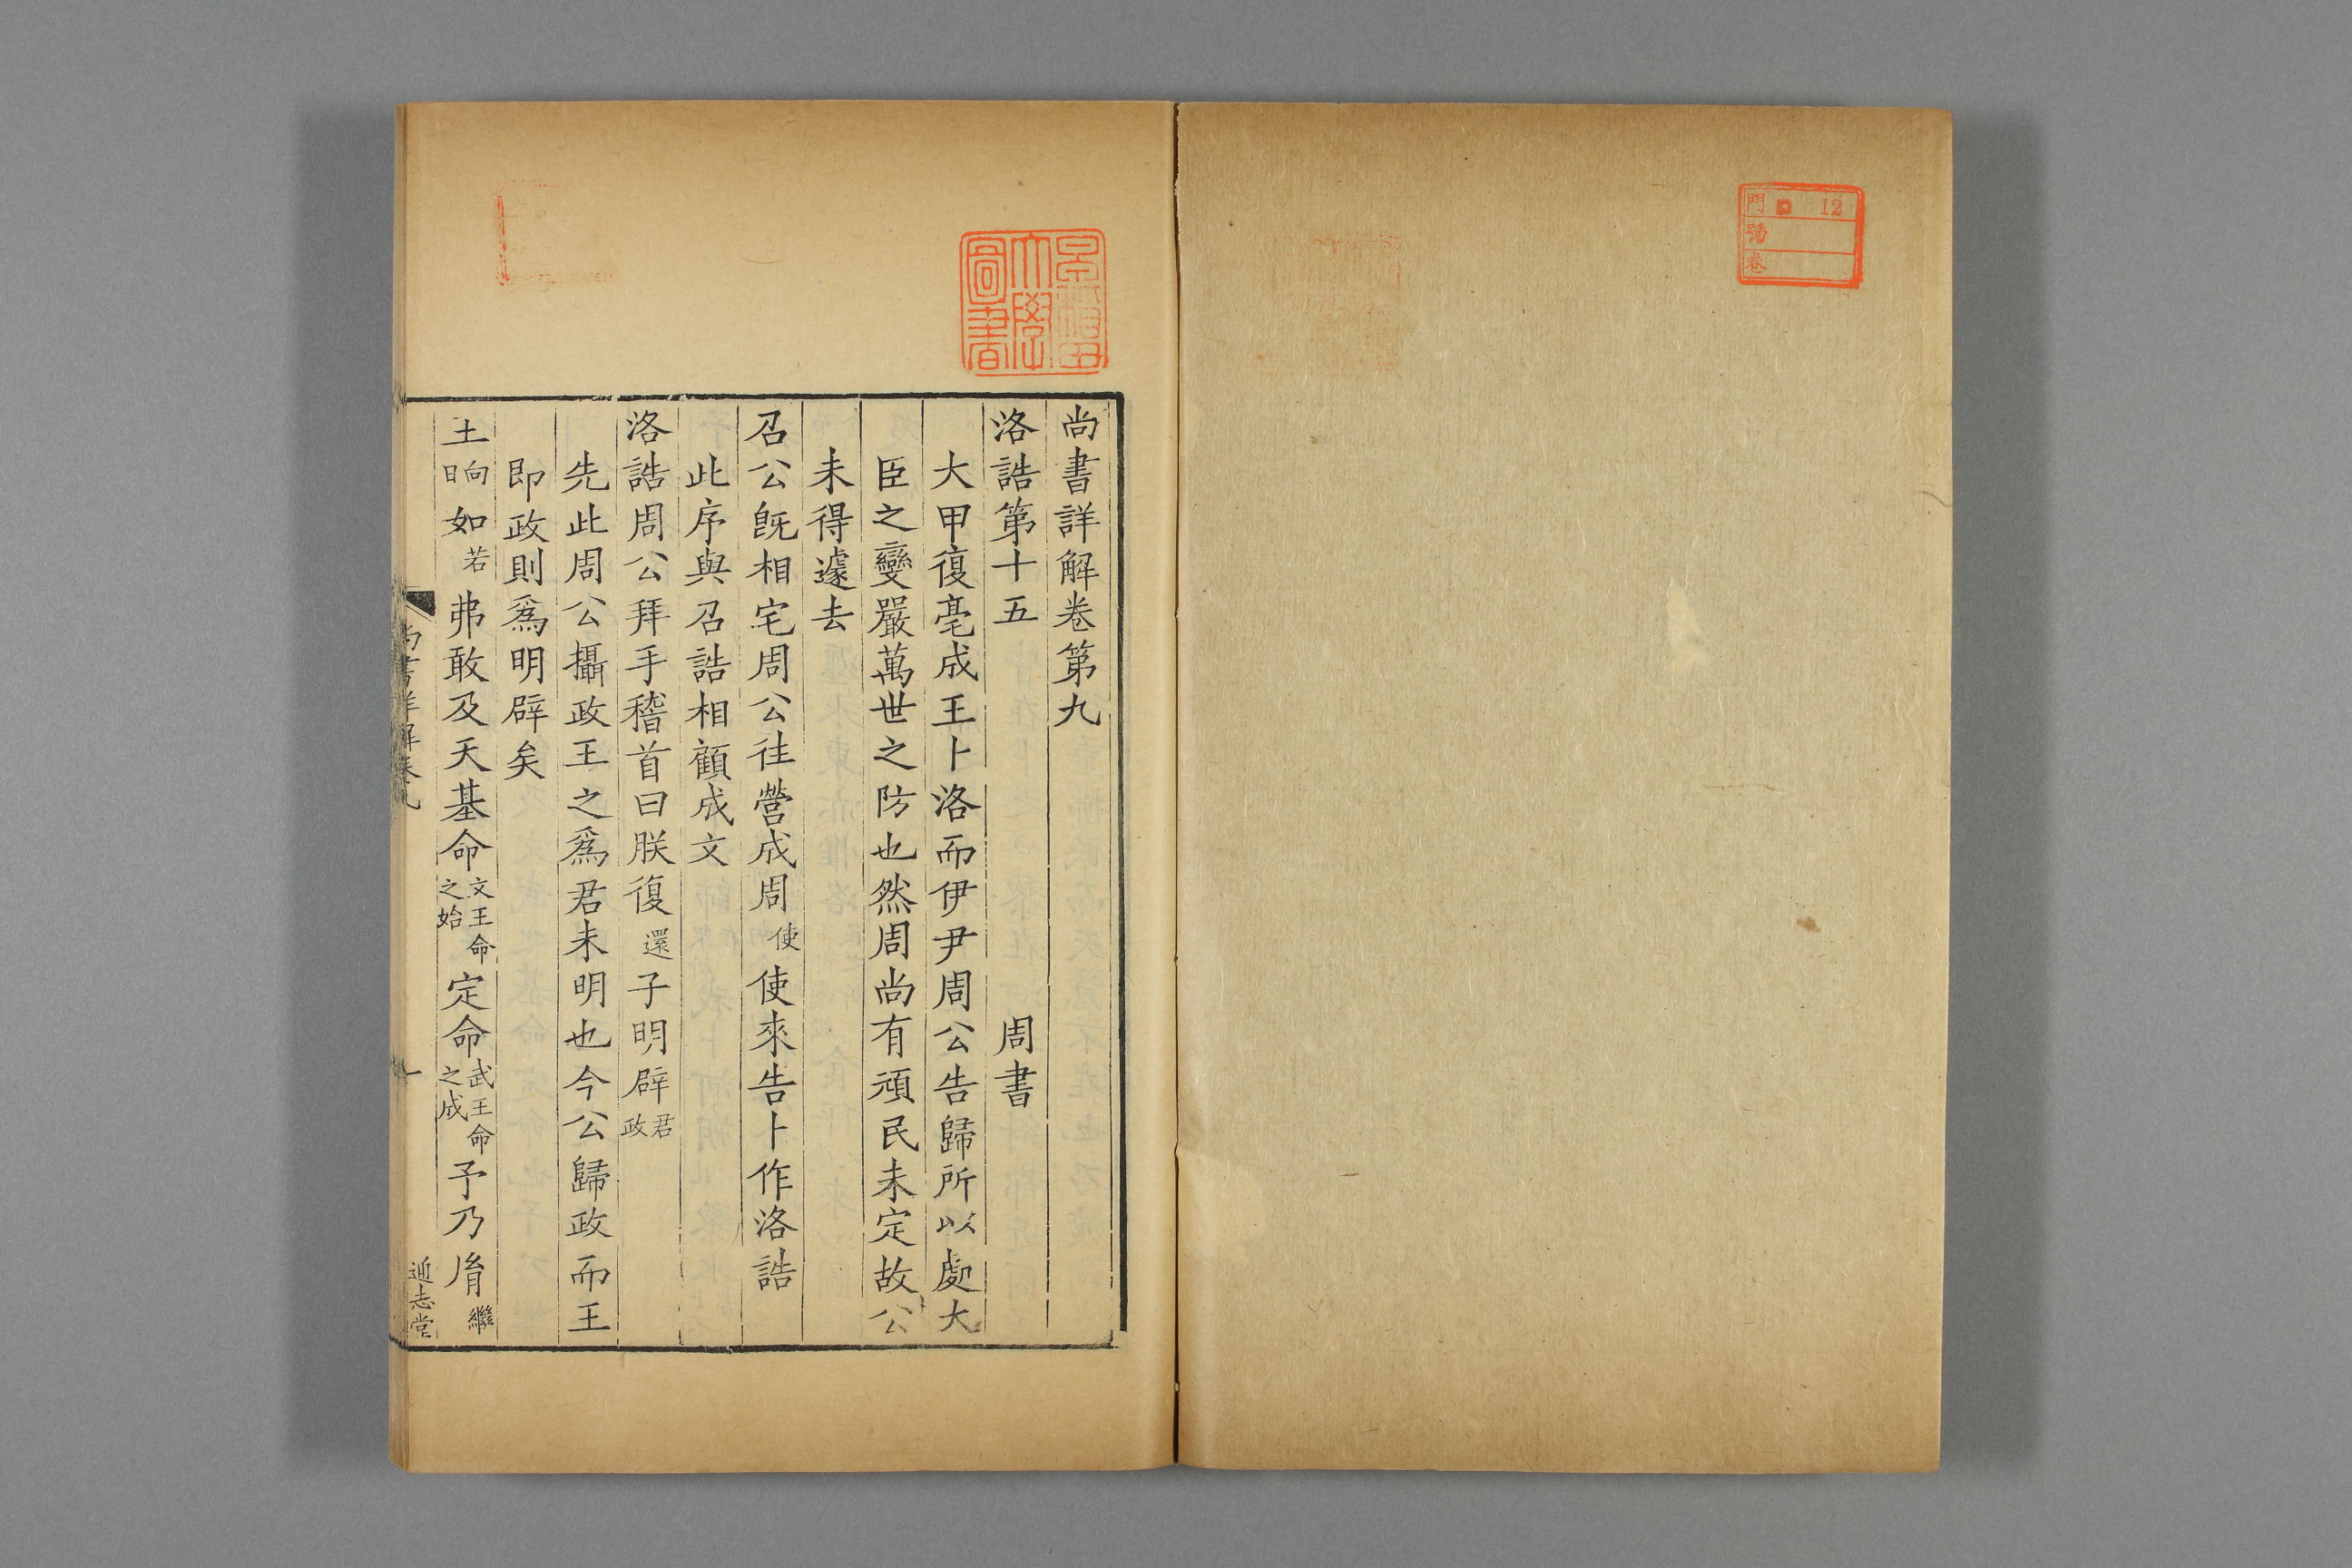 門 ロ 12
號
卷
早稲田大學圖書
尚書詳解卷第九
洛誥第十五 周書
大甲復亳成王卜洛而伊尹周公告歸所以處大
臣之變嚴萬世之防也然周尚有頑民未定故公
未得遽去
召公旣相宅周公往營成周使使來告卜作洛誥
此序與召誥相顧成文
洛誥周公拜手稽首曰朕復還子明辟君政
先此周公攝政王之爲君未明也今公歸政而王
即政則爲明辟矣
土日向如若弗敢及天基命文王命之始定命武王命之成予乃胤繼
尚書詳解卷九 一 通志堂